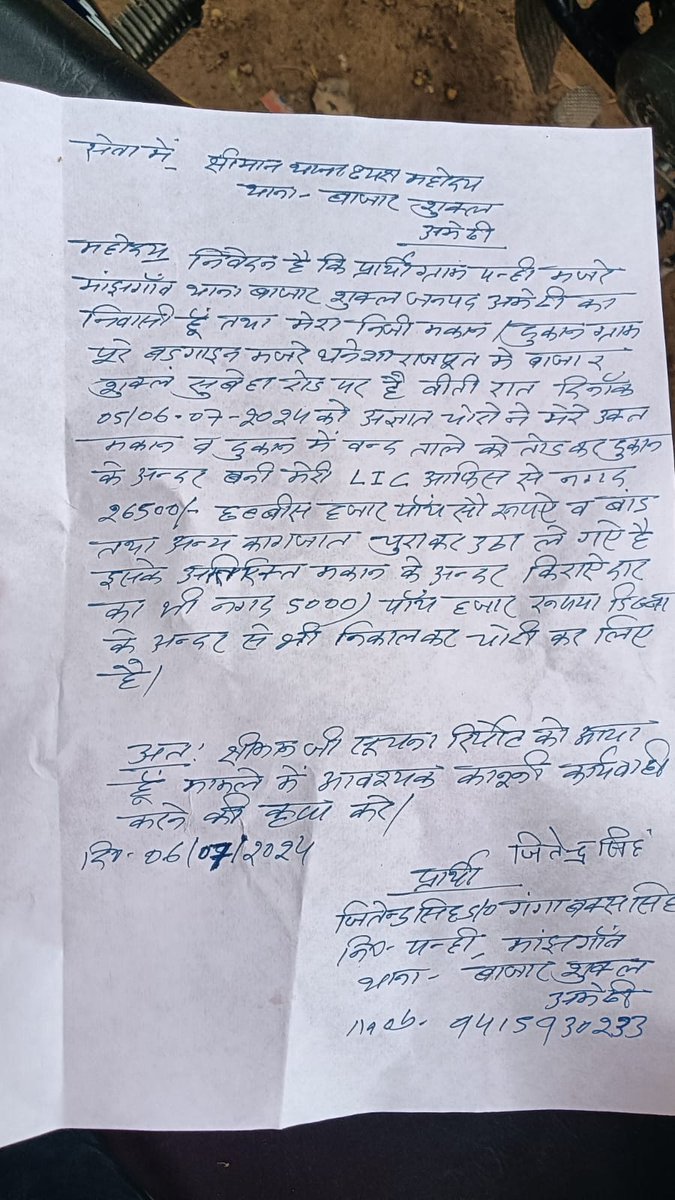 सेवा में, श्रीमान थानाध्यक्ष महोदय
थाना- बाजार शुक्ल
अमेठी
महोदय निवेदन है कि प्रार्थी ग्राम पन्ही मजरे
मांझगाँव थाना बाजार शुक्ल जनपद अमेठी का
निवासी हूँ तथा मेरा निजी मकान/दुकान ग्राम
पूरे बडगाइन मजरे धनेशा राजपूत में बाजार
शुक्ल सुबेहा रोड पर है बीती रात दिनाँक
05/06-07-2024 को अज्ञात चोरो ने मेरे उक्त
मकान व दुकान में बन्द ताले को तोडकर दुकान
के अन्दर बनी मेरी LIC आफिस से नगद
26500/- छब्बीस हजार पाँच सौ रूपऐ व बांड
तथा अन्य कागजात चुराकर उठा ले गऐ है
इसके अतिरिक्त मकान के अन्दर किराऐदार
का भी नगद 5000) पाँच हजार रूपया डिब्बा
के अन्दर से भी निकालकर चोरी कर लिए
है।
अतः श्रीमान जी सूचना रिर्पोट को आया
हूँ मामले में आवश्यक कानूनी कार्यवाही
करने की कृपा करे।
दि०-06/07/2024
जितेन्द्र सिंह
प्रार्थी
जितेन्द्र सिंह S/O गंगा बक्स सिंह
नि०- पन्ही, मांझगाँव
थाना- बाजार शुक्ल
अमेठी
Mob- 9415930233